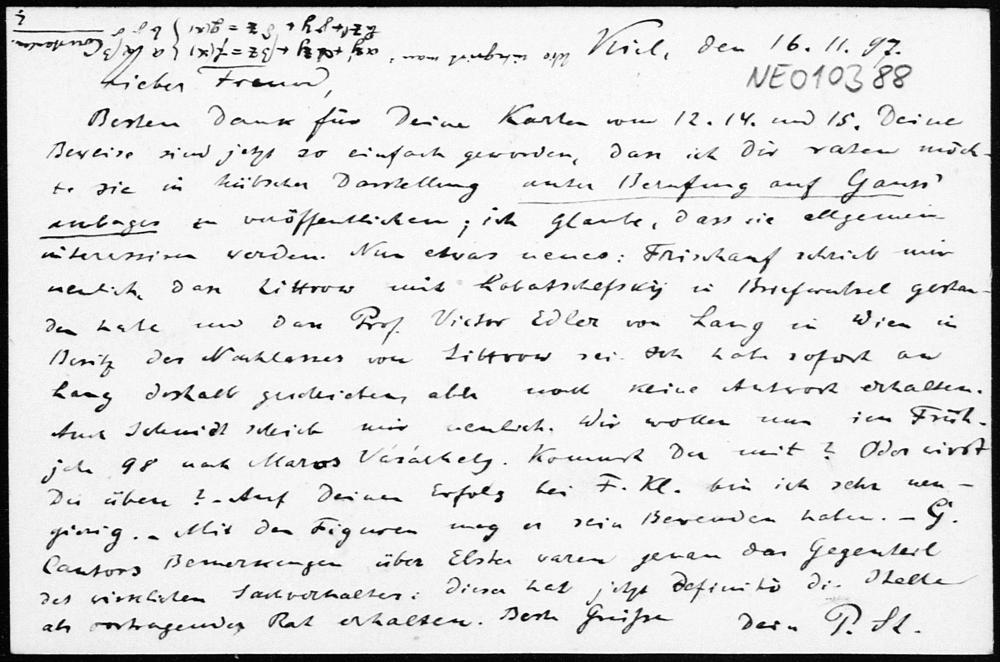 Kiel, den 16.11.97.
NEO10388
Lieber Freund,
Besten Dank für Deine Karten vom 12. 14. und 15. Deine
Beweise sind jetzt so einfach geworden, dass ich Dir raten möch-
te sie in hübscher Darstellung unter Berufung auf Gauss'
zu veröffentlichen; ich glaube, dass sie allgemein
interessiren werden. Nun etwas neues: Frischauf schrieb mir
neulich, dass Littrow mit Lobatschefskij in Briefwechsel gestan-
den habe und dass Prof. Victor Edler von Lang in Wien im
Besitz des Nachlasses von Littrow sei. Ich habe sofort an
Lang deshalb geschrieben, aber noch keine Antwort erhalten.
Auch Schmidt schrieb mir neulich. Wir wollen nun im Früh-
jahr 98 nach Maros Vásárhely. Kommst Du mit? Oder wirst
Du üben? - Auf Deinen Erfolg bei F. Kl. bin ich sehr neu-
gierig. - Mit den Figuren mag es sein Bewenden haben. - G.
Cantors Bemerkungen über Elster waren genau das Gegenteil
des wirklichen Sachverhaltes: dieser hat jetzt definitiv die Stelle
als vortragender Rat erhalten. Beste Grüsse Dein P. St.
Wie integrirt man:
Constanten.